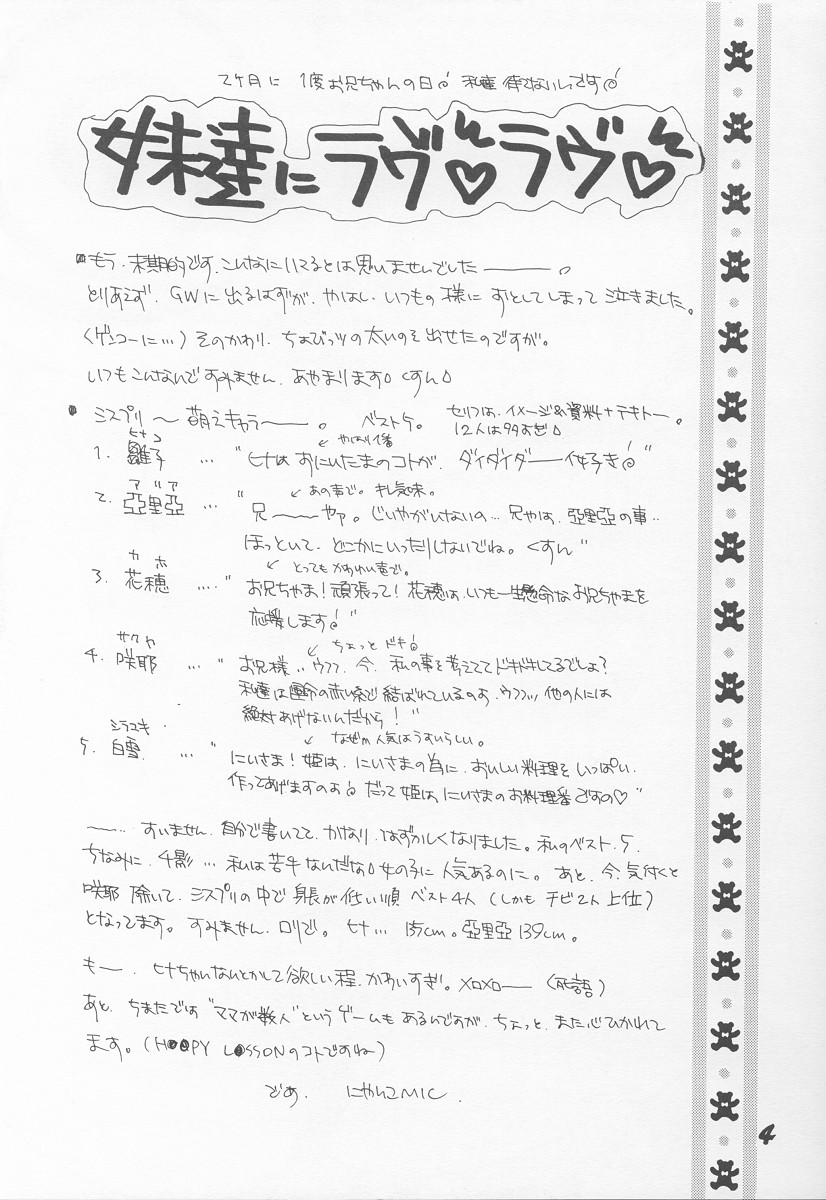 2ヶ月に 1度お兄ちゃんの日 私達 待てないんです
妹達にラヴ♡ラヴ♡
もう、末期的です。こんなにハマるとは思いませんでした———。
とりあえず、GWに出るはずが、やはし、いつもの様に おとしてしまって 泣きました。
(ゲンコーに…) そのかわり、ちょびっツの太いのを出せたのですが。
いつもこんなんですみません、あやまります。くすん。
シスプリ 〜 萌えキャラ———。 ベスト5。 セリフは、イメージ&資料+テキトー。
12人は多すぎ。
ヒナコ
やはり1番
1. 雛子 … "ヒナは おにいたまのコトが、ダイダイダーイ好き"
アリア
あの声で。キレ気味。
2. 亞里亞 … "兄———やァ。じいやがいないの… 兄やは、亞里亞の事…
ほっといて、どこかにいったりしないでね。くすん"
カホ
とってもかわいい声で。
3. 花穂 … "お兄ちゃま!頑張って!花穂は、いつも一生懸命なお兄ちゃまを
応援します"
サクヤ
ちょっと ドキ
4. 咲耶 … "お兄様…ウフフ、今、私の事を考えててドキドキしてるでしょ?
私達は運命の赤い糸で 結ばれているのよ、ウフフッ 他の人には
絶対あげないんだから!"
シラユキ
なぜか人気はうすいらしい。
5. 白雪 … "にいさま!姫は、にいさまの為に、おいしい料理を いっぱい、
作ってあげますのよ だって姫は、にいさまのお料理番ですの♡"
—… すいません、自分で書いてて、かなり、はずかしくなりました。私のベスト、5、
ちなみに、千影… 私は苦手なんだな。女の子に人気あるのに。あと、今、気付くと
咲耶 除いて、シスプリの中で 身長が低い順 ベスト4人 (しかも チビ2人 上位)
となってます。すみません、ロリで。ヒナ… 135cm。亞里亞 139cm。
もー、ヒナちゃんなんとかして欲しい程、かわいすぎ。メロメロ—— (死語)
あと、ちまたでは "ママが数人"というゲームもあるんですが、ちょっと、また心ひかれて
ます。(H●●PY L●SSONのコトですね)
でわ、 にゃんこMIC.
4